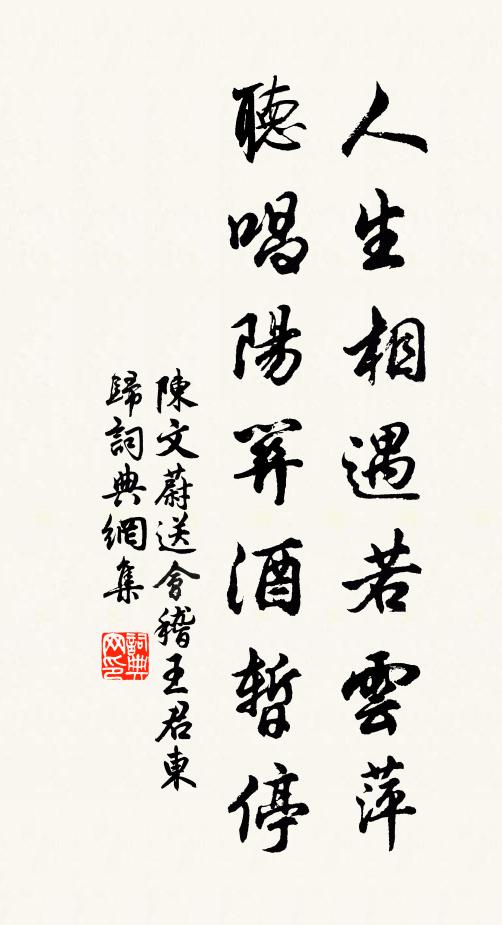 人生相遇若雲萍
聽唱陽關酒暫停
陳文蔚送會稽王君東
歸詞典網集
詞典网印